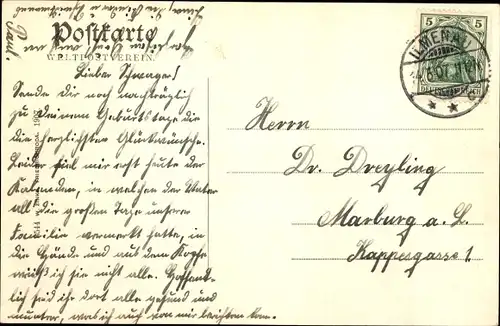 Postkarte
WELTPOSTVEREIN.
Lieber Schwager!
Sende dir noch nachträglich
zu Deinem Geburtstage die
die herzlichsten Glückwünsche.
Leider fiel mir erst heute der
Kalender, in welchen der Vater
all die großen Tage unserer
Familie vermerkt hatte, in
die Hände und aus dem Kopfe
weiß ich sie nicht alle. Hoffent-
lich seid ihr dort alle gesund und
munter, was ich auch von mir berichten kann.
Paul.
ILMENAU
5 5
DEUTSCHES REICH
Herrn
Dr. Dreyling
Marburg a. L.
Kappesgasse 1.